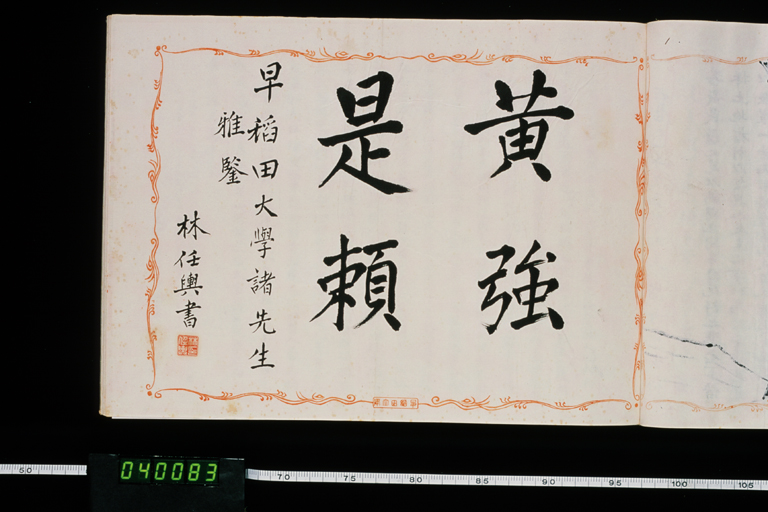 黃強
是賴
早稻田大學諸先生
雅鑒
林任輿書
040083
50
70
75
80
85
90
95
100
105